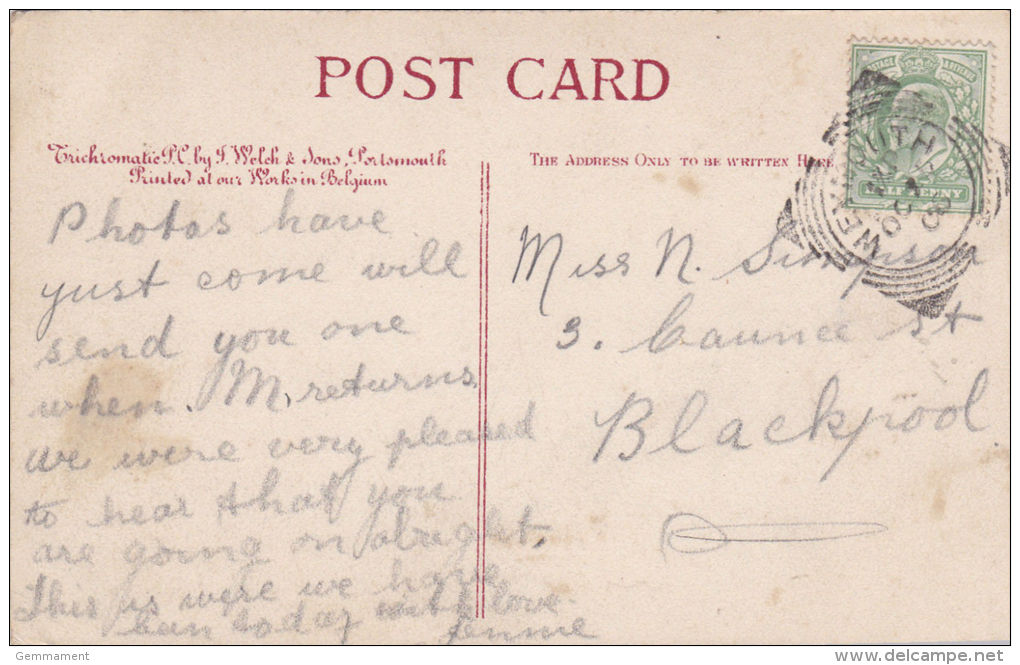 POST CARD
Trichromatic P.C. by J. Welch & Sons, Portsmouth
Printed at our Works in Belgium
THE ADDRESS ONLY TO BE WRITTEN HERE
WEYMOUTH
OC
08
HALFPENNY
Photos have
just come will
send you one
when M. returns.
we were very pleased
to hear that you
are going on alright.
This is were we have
ben today with love
Miss N. Simpson
3. Caunce St
Blackpool
Gemmament
www.delcampe.net